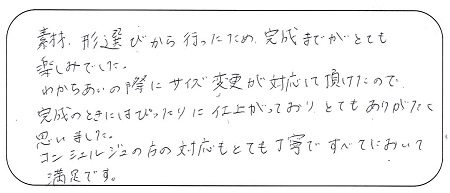 素材、形選びから行ったため、完成までがとても
楽しみでした。
わかちあいの際にサイズ変更が対応して頂けたので
完成のときにはぴったりに仕上がっており、とてもありがたく
思いました。
コンシェルジュの方の対応もとても丁寧ですべてにおいて
満足です。